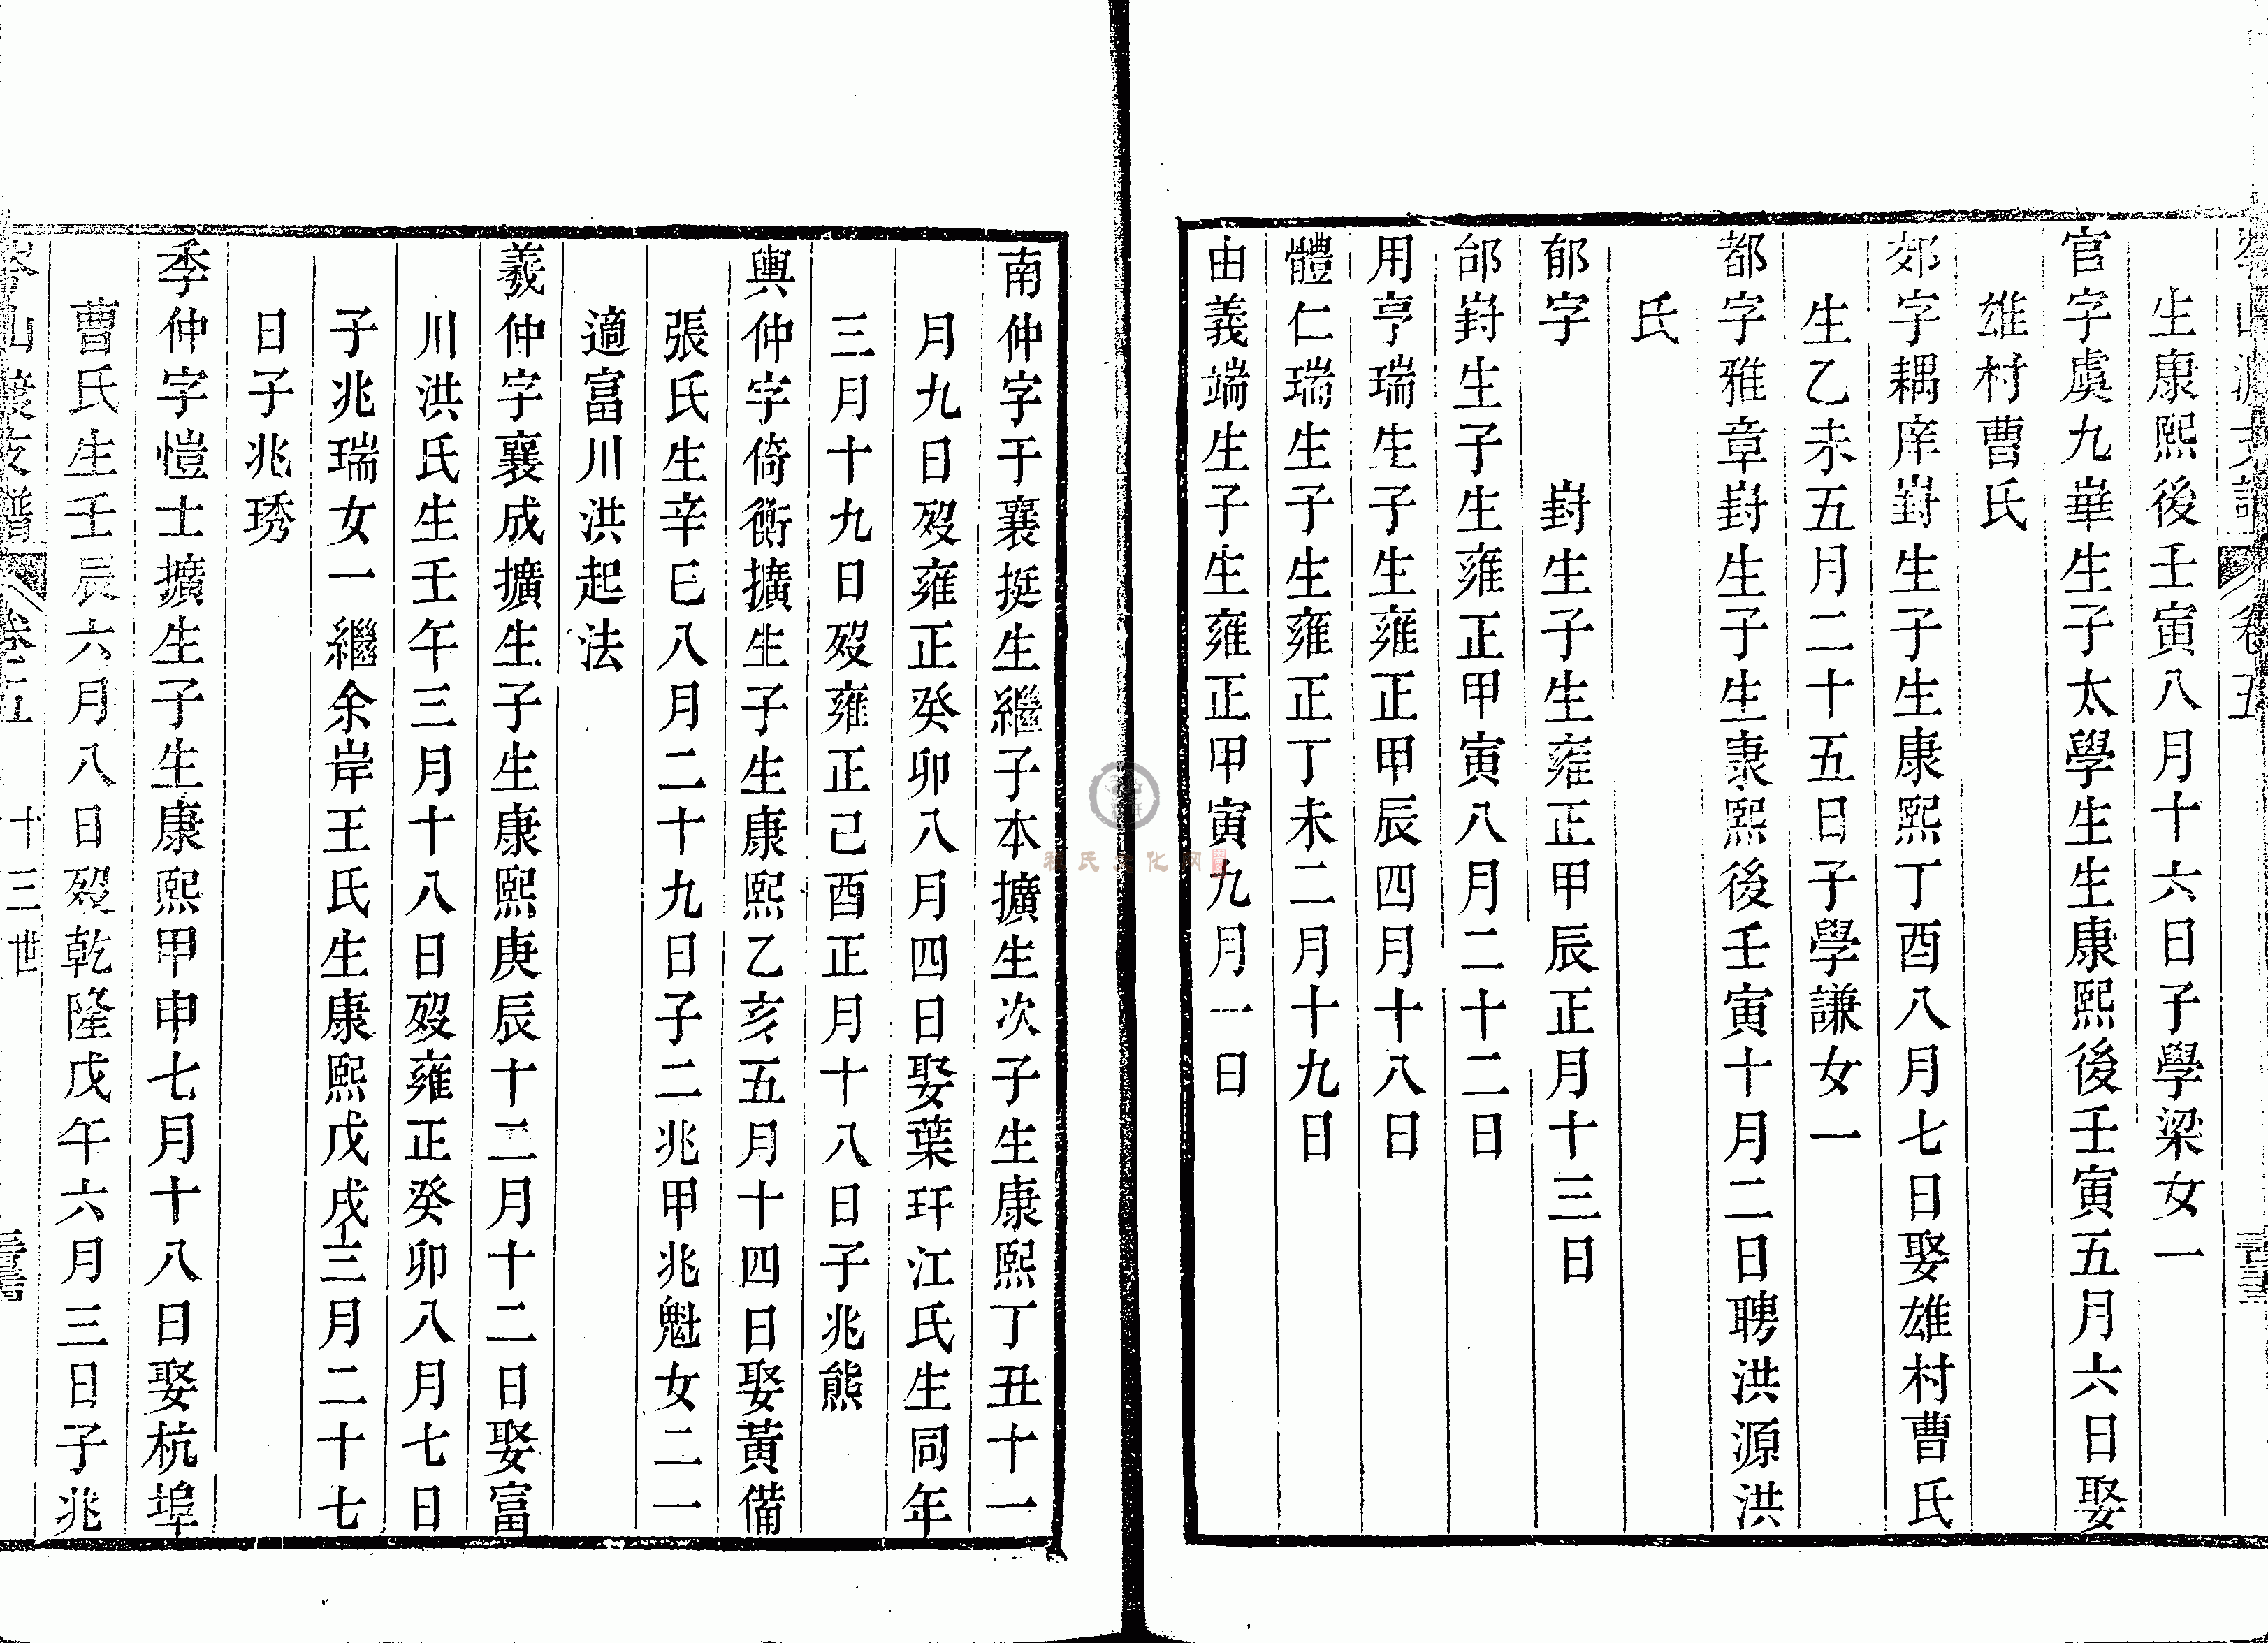 生康熙後壬寅八月十六日子學梁女一
官字虞九華生子太學生生康熙後壬寅五月六日娶
雄村曹氏
郊字耦庠崶生子生康熙丁酉八月七日娶雄村曹氏
生乙未五月二十五日子學謙女一
都字雅章崶生子生康熙後壬寅十月二日聘洪源洪
氏
郁字 崶生子生雍正甲辰正月十三日
邰崶生子生雍正甲寅八月二十二日
用亨瑞生子生雍正甲辰四月十八日
體仁瑞生子生雍正丁未二月十九日
由義端生子生雍正甲寅九月一日
南仲字于襄挺生繼子本擴生次子生康熙丁丑十一
月九日歿雍正癸卯八月四日娶葉玕江氏生同年
三月十九日歿雍正己酉正月十八日子兆熊
輿仲字倚衡擴生子生康熙乙亥五月十四日娶黃備
張氏生辛巳八月二十九日子二兆甲兆魁女二一
適富川洪起法
羲仲字襄成擴生子生康熙庚辰十二月十二日娶富
川洪氏生壬午三月十八日歿雍正癸卯八月七日
子兆瑞女一繼余岸王氏生康熙戊戌十三月二十七
日子兆琇
季仲字愷士擴生子生康熙甲申七月十八日娶杭埠
曹氏生壬辰六月八日歿乾隆戊午六月三日子兆
支譜 卷五 十三世